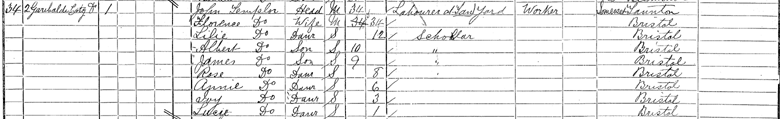 34 2 Garibaldi Cotg Do 1 John Templor Head M 34 Labourer at Tan Yard Worker Somerset Taunton
Florence Do Wife M 34 Bristol
Lilie Do Daur S 12 Scholar Bristol
Albert Do Son S 10 " Bristol
James Do Son S 9 " Bristol
Rose Do Daur S 8 " Bristol
Annie Do Daur S 6 Bristol
Ivy Do Daur S 3 Bristol
Do Daur S 1 Bristol